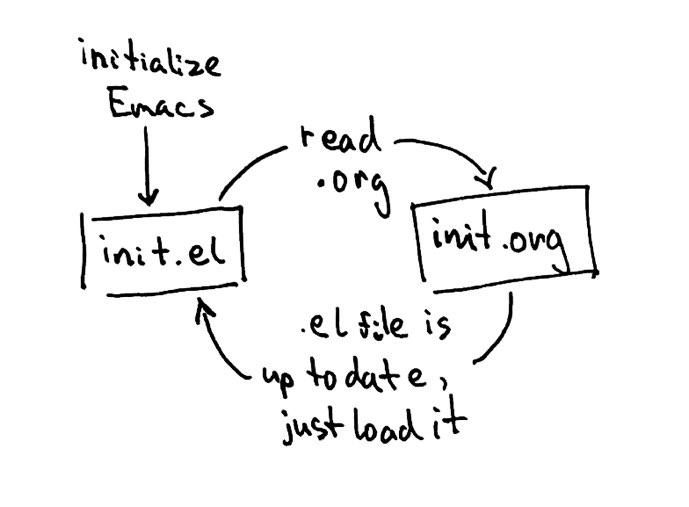 initialize
Emacs
read
.org
init.el
init.org
.el file is
up to date,
just load it